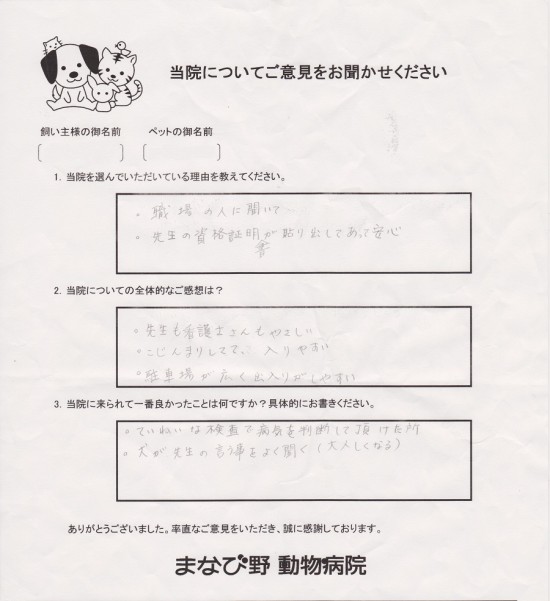 当院についてご意見をお聞かせください
飼い主様の御名前 ペットの御名前
1. 当院を選んでいただいている理由を教えてください。
。職場の人に聞いて…
。先生の資格証明書が貼り出してあって安心
2. 当院についての全体的なご感想は?
。先生も看護士さんもやさしい
。こじんまりしてて、入りやすい
。駐車場が広く出入りがしやすい
3. 当院に来られて一番良かったことは何ですか?具体的にお書きください。
。ていねいな検査で病気を判断して頂けた所
。犬が先生の言う事をよく聞く(大人しくなる)
ありがとうございました。率直なご意見をいただき、誠に感謝しております。
まなび野 動物病院